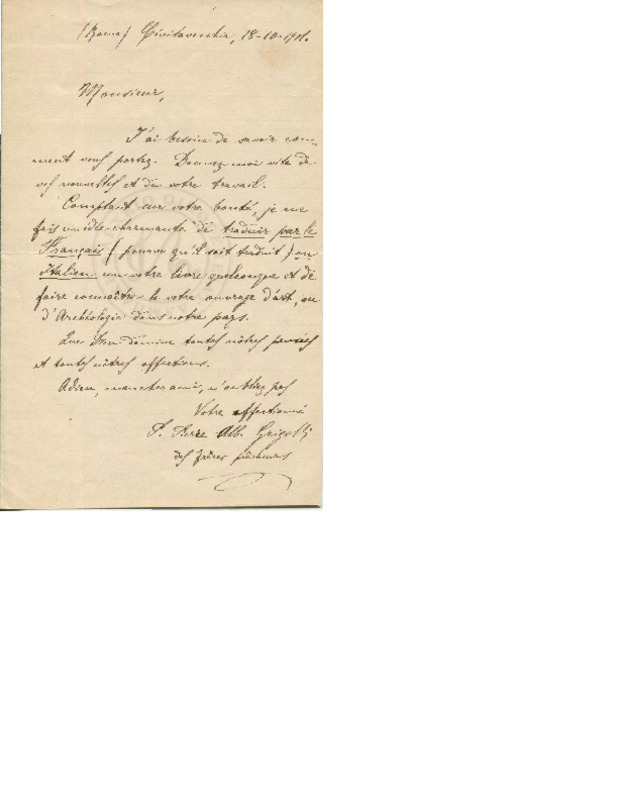 (Roma) Civitavecchia, 18-10-1901.
Monsieur,
J'ai besoin de savoir com-
ment vous portez. Donnez-moi vite de
vos nouvelles et de votre travail.
Comptant sur votre bonté, je me
fais un idée charmante de traduir par le
Français (pourvu qu'il soit traduit) en
Italien un votre livre quelconque et de
faire connaître le votre ouvrage d'art, ou
d'Archéologie dans notre pays.
Que Dieu domine toutes nôtres pensées
et toutes nôtres affections.
Adieu, mon cher ami, n'oubliez pas
Votre affectionné
P. Pierre Alb. Grigolli
des frères prêcheurs